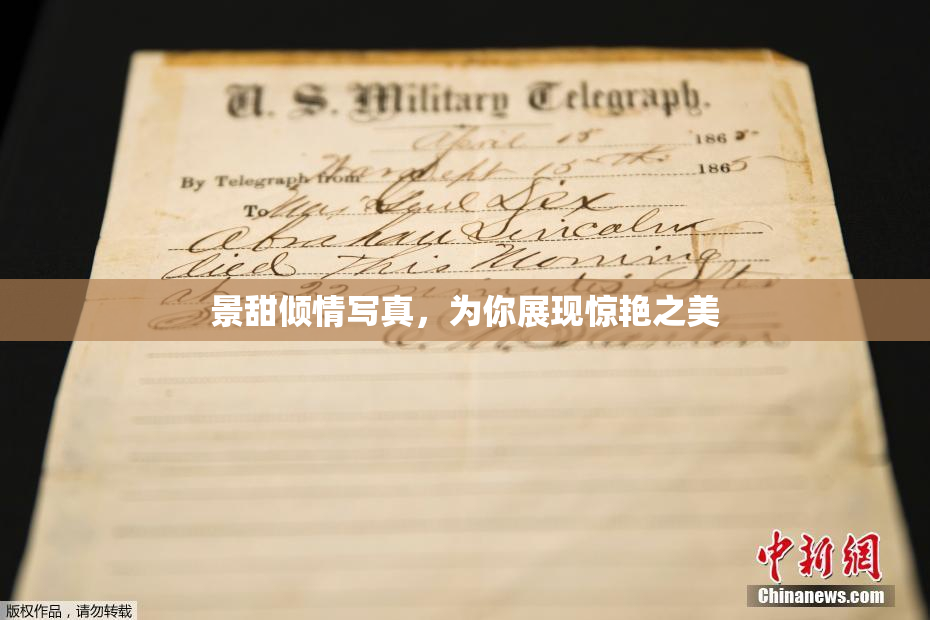 U. S. Military Telegraph.
April 15 1865
By Telegraph from War Dept 15th 1865
To Maj Genl Dix
Abraham Lincoln
died This Morning
at 22 minutes after
景甜倾情写真，为你展现惊艳之美
E. M. Stanton
中新網
Chinanews.com
版权作品，请勿转载